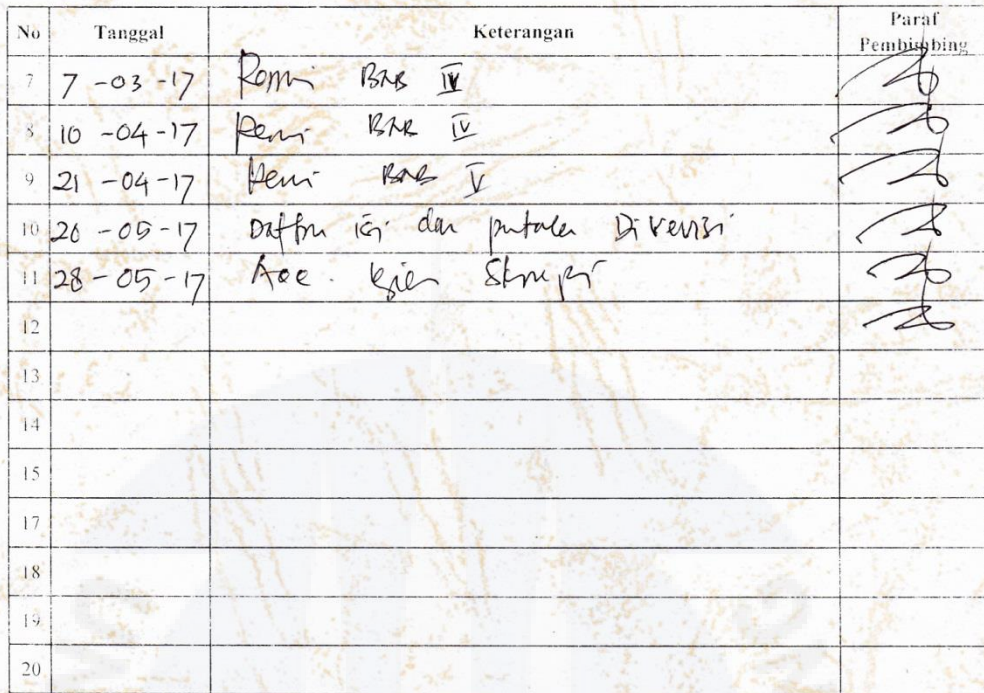 No Tanggal Keterangan Paraf Pembimbing
7 7-03-17 Revisi BAB IV
8 10-04-17 Revisi BAB IV
9 21-04-17 Revisi BAB V
10 26-05-17 Daftar isi dan pustaka Direvisi
11 28-05-17 Acc. Skripsi
12
13
14
15
17
18
19
20